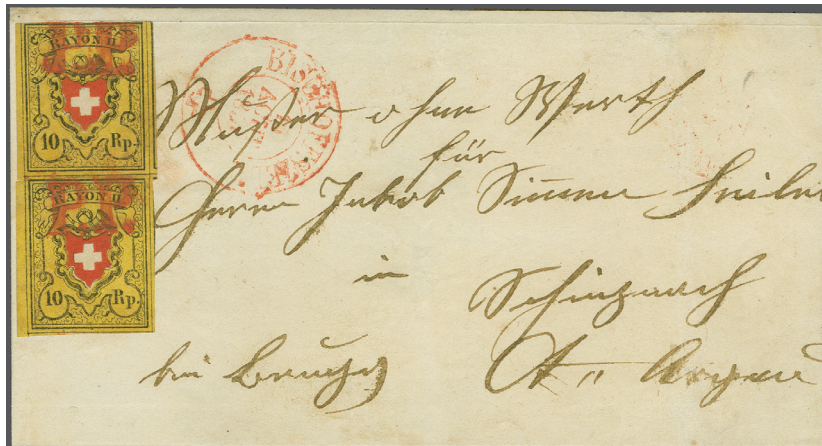 RAYON II
10 Rp.
RAYON II
10 Rp.
BISCHOFSZELL
Muster ohne Werth
für
Herrn Jakob Simmen
in
Schinznach
bei Brugg Ct. Argau